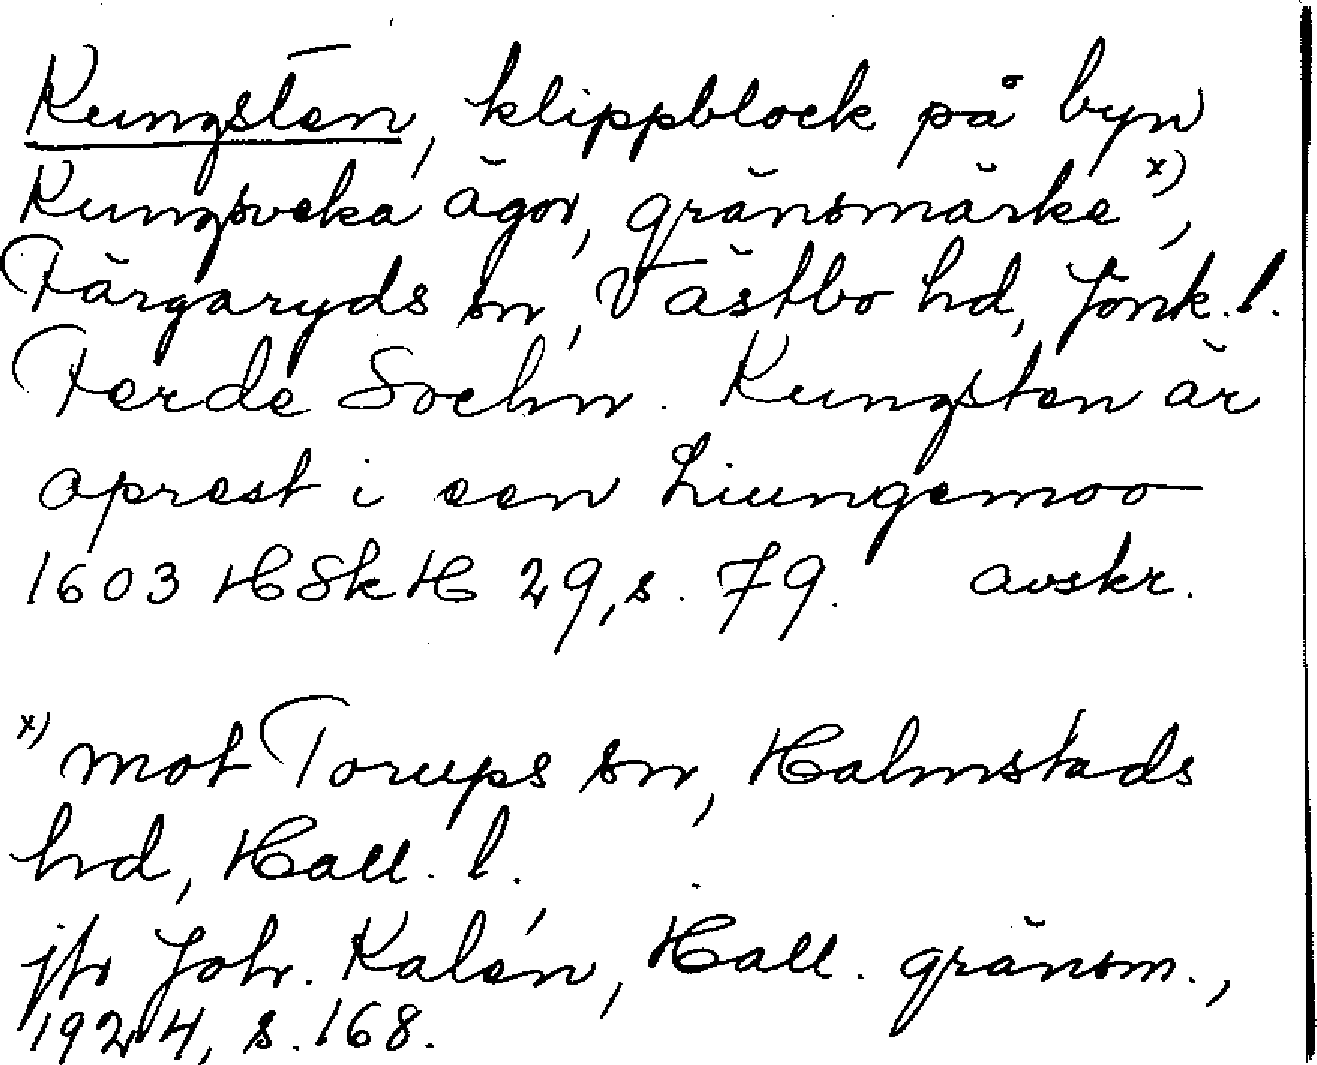 Kungsten, klippblock på byn
Kungsveka ägor, gränsmärke x),
Färgaryds sn, Västbo hd, Jönk. l.
Ferde Soehn. Kungsten är
oprest i een Liungemoo
1603 HSkH 29, s. 79. avskr.
x) mot Torups sn, Halmstads
hd, Hall. l.
jfr Joh. Kalén, Hall. gränsm.,
1924, s. 168.